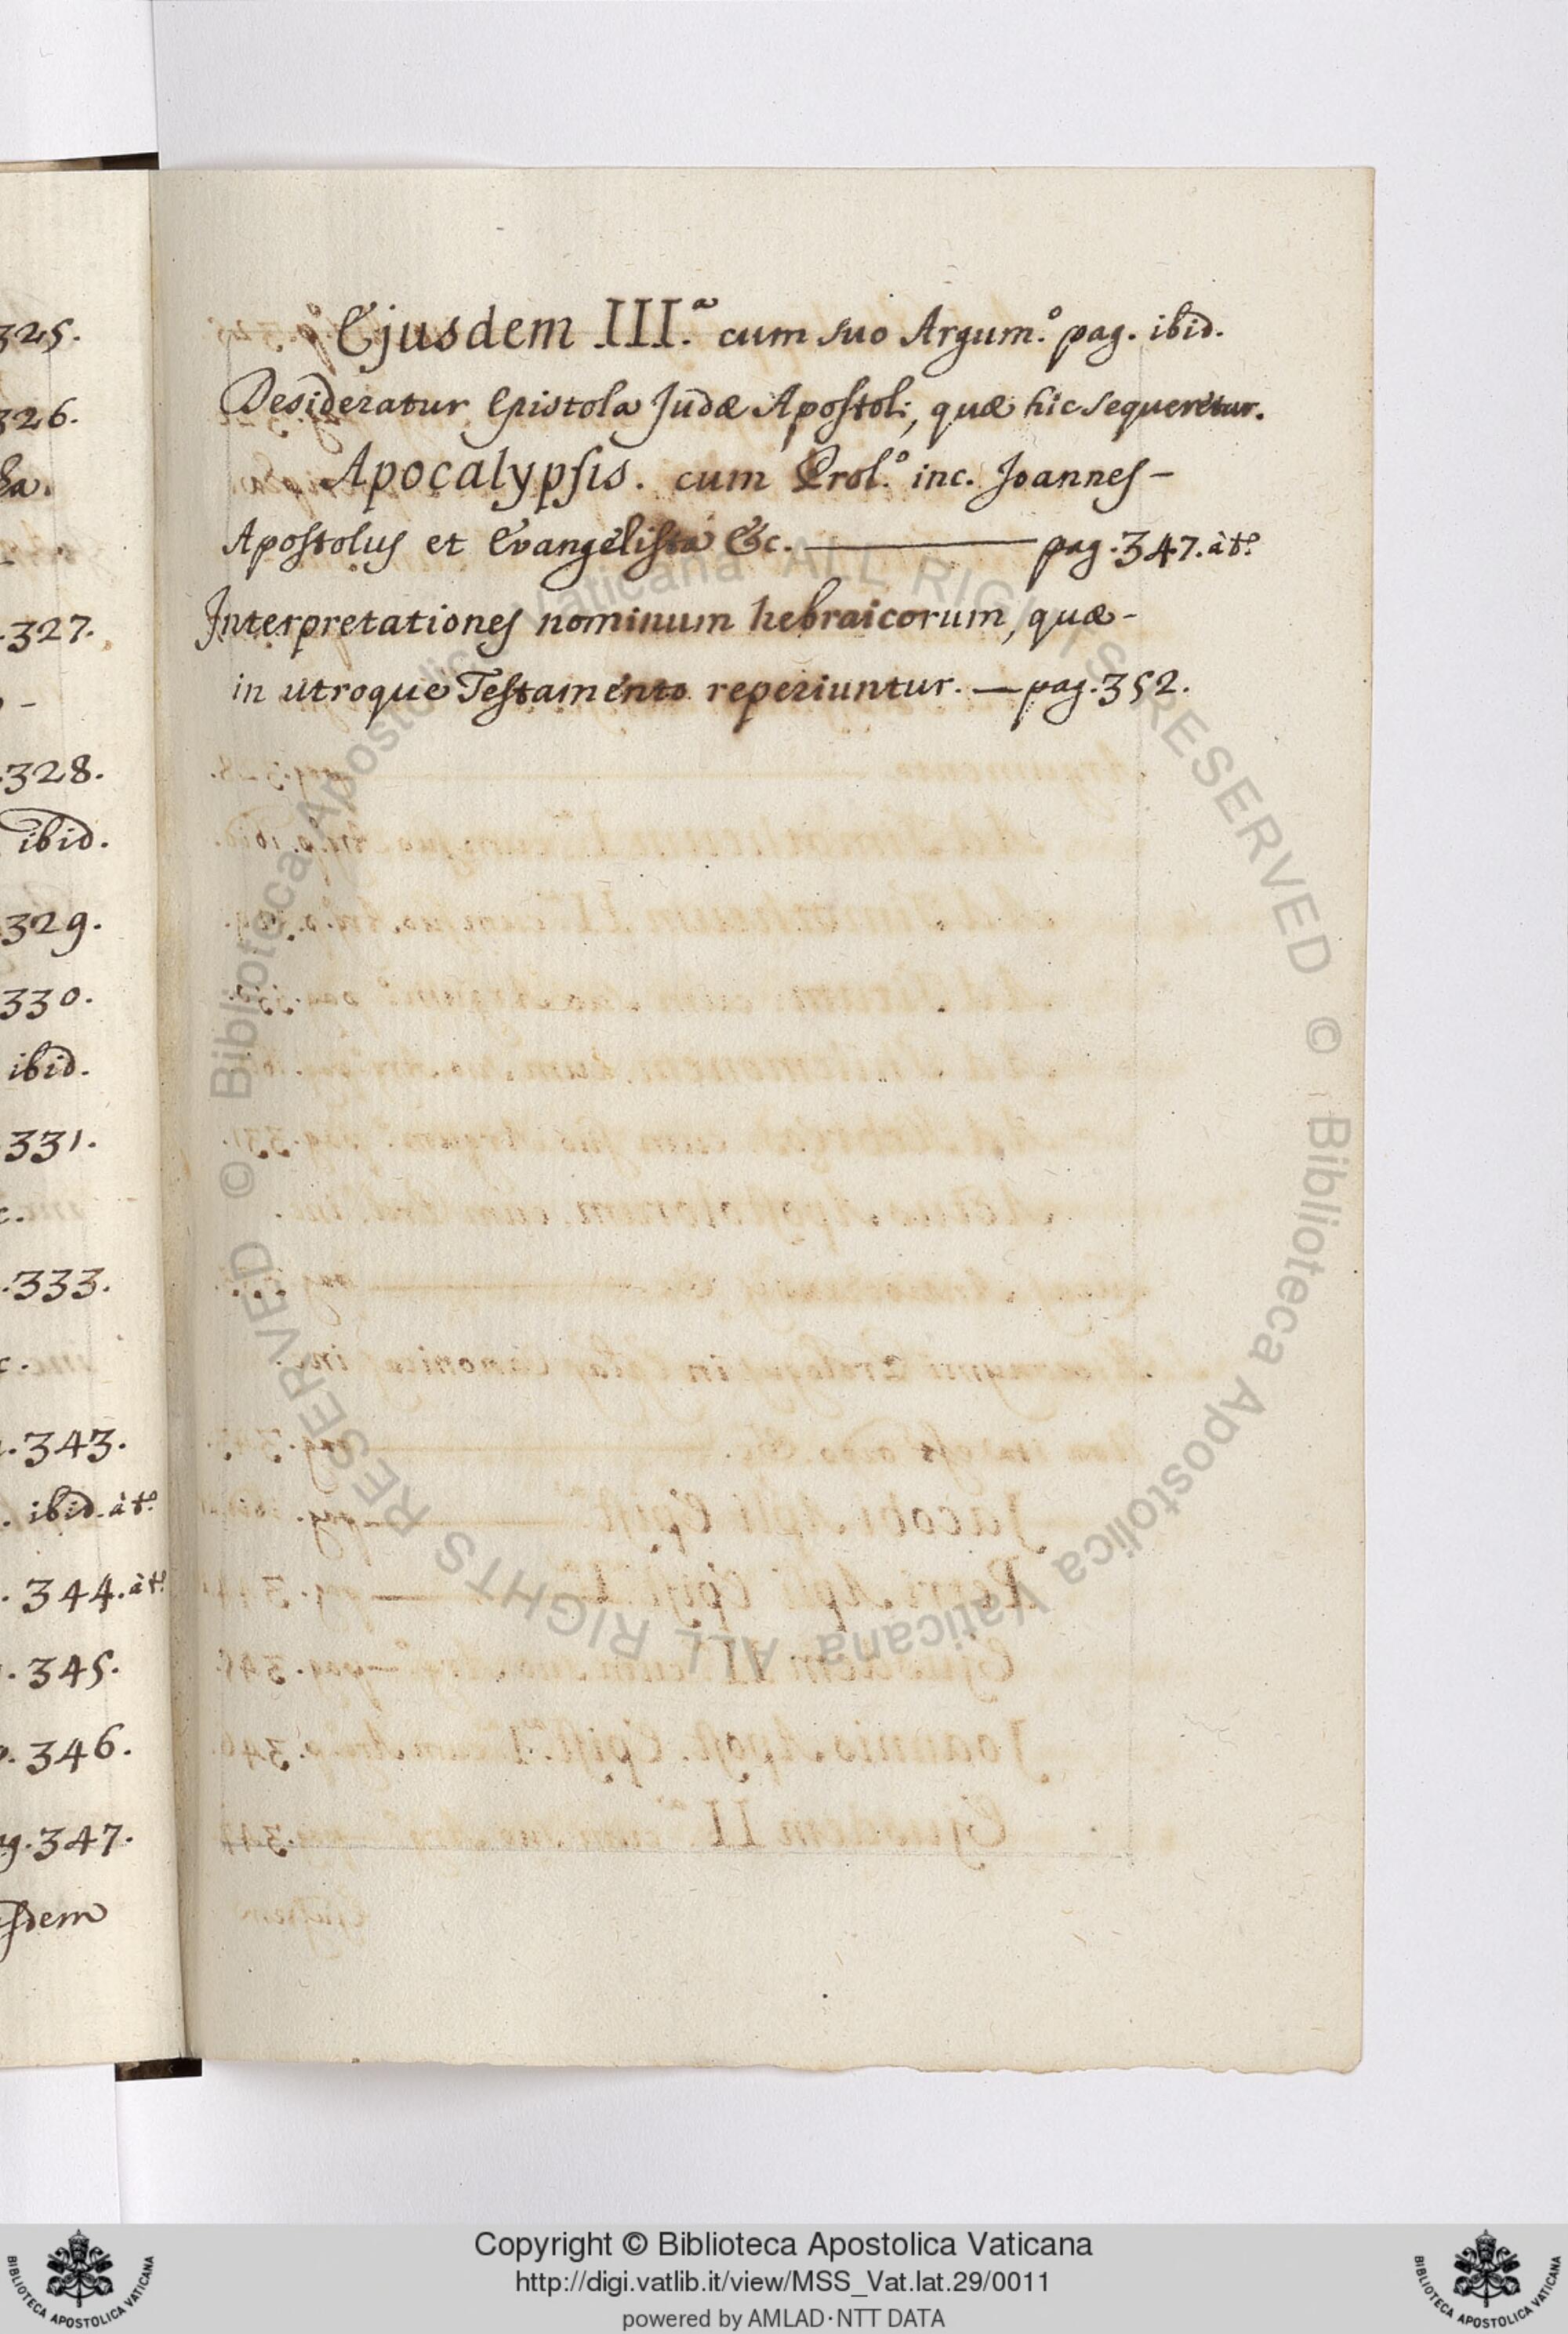 325.
326.
.327.
.328.
ibid.
329.
330.
ibid.
331.
.333.
.343.
. ibid. à tº
. 344. à tº
. 345.
. 346.
.347.
Ejusdem III.ª cum suo Argum.º pag. ibid.
Desideratur Epistola Judæ Apostoli, quæ hic sequeretur.
Apocalypsis. cum Prol.º inc. Joannes -
Apostolus et Evangelista &c. — pag. 347. à tº
Interpretationes nominum hebraicorum, quæ -
in utroque Testamento reperiuntur. — pag. 352.
© Biblioteca Apostolica Vaticana ALL RIGHTS RESERVED © Biblioteca Apostolica Vaticana ALL RIGHTS RESERVED
Copyright © Biblioteca Apostolica Vaticana
http://digi.vatlib.it/view/MSS_Vat.lat.29/0011
powered by AMLAD·NTT DATA
BIBLIOTECA APOSTOLICA VATICANA
BIBLIOTECA APOSTOLICA VATICANA